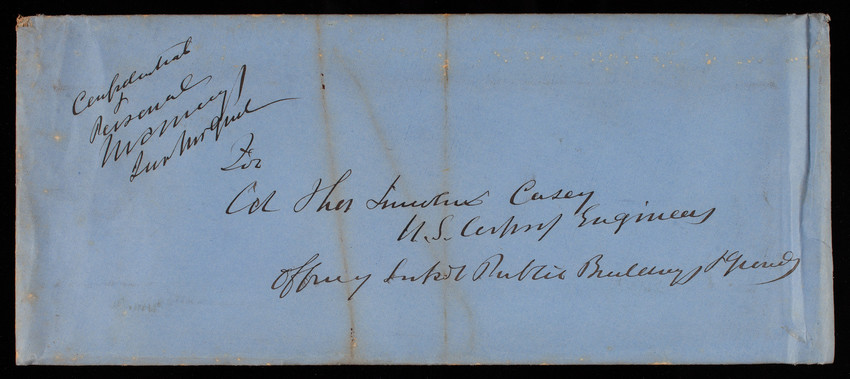 Confidential
&
Personal
For
Col Thos Lincoln Casey
U.S. Corps of Engineers
Office of Supdt Public Buildings & Grounds